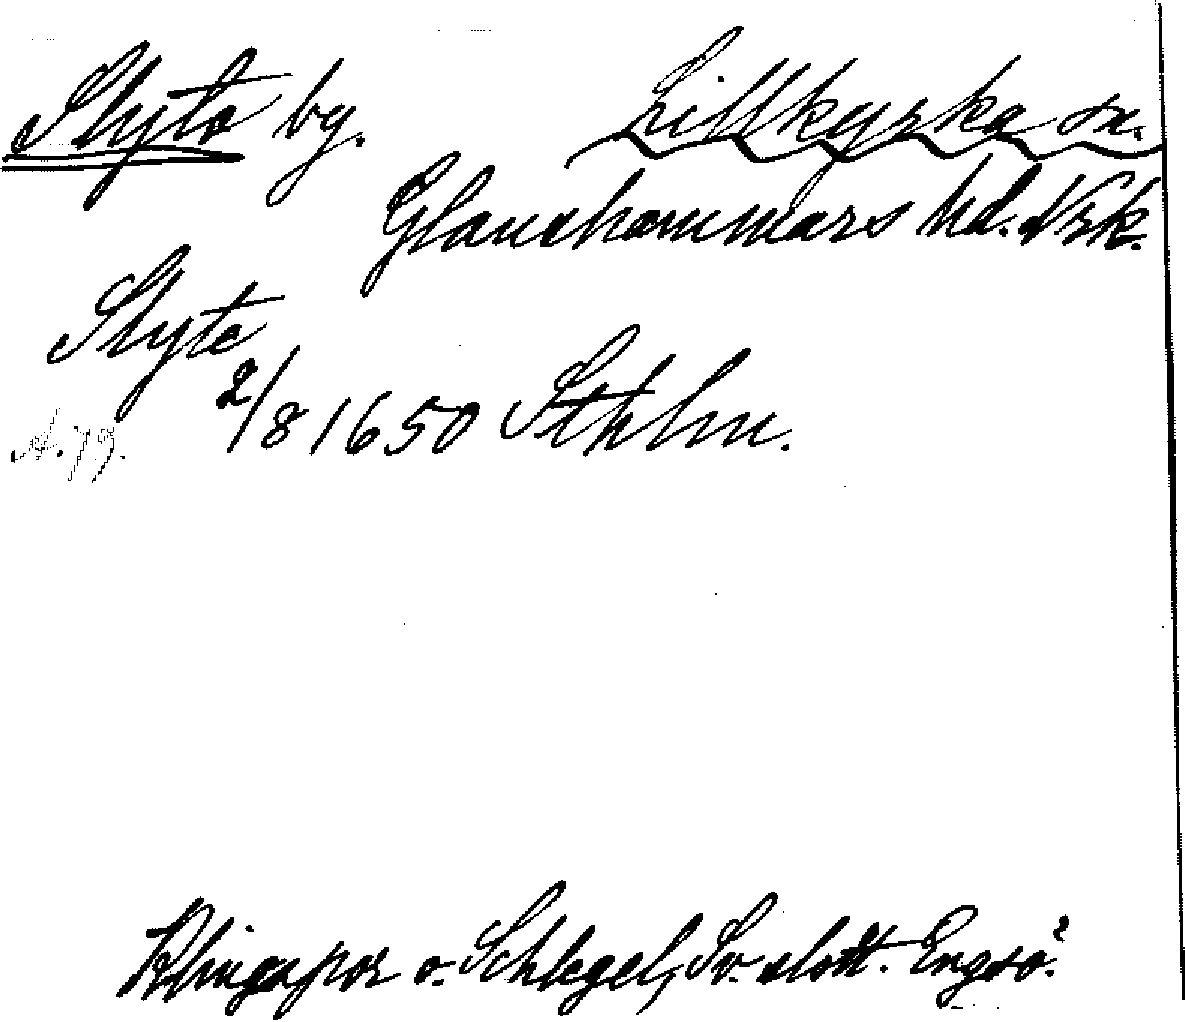 Slyto by. Lillkyrka sn.
Glanshammars hd. Nrk.
Slyte
2/8 1650 Sthlm.
A. 79.
Klingspor o. Schlegel, Sv. slott. Engsö.